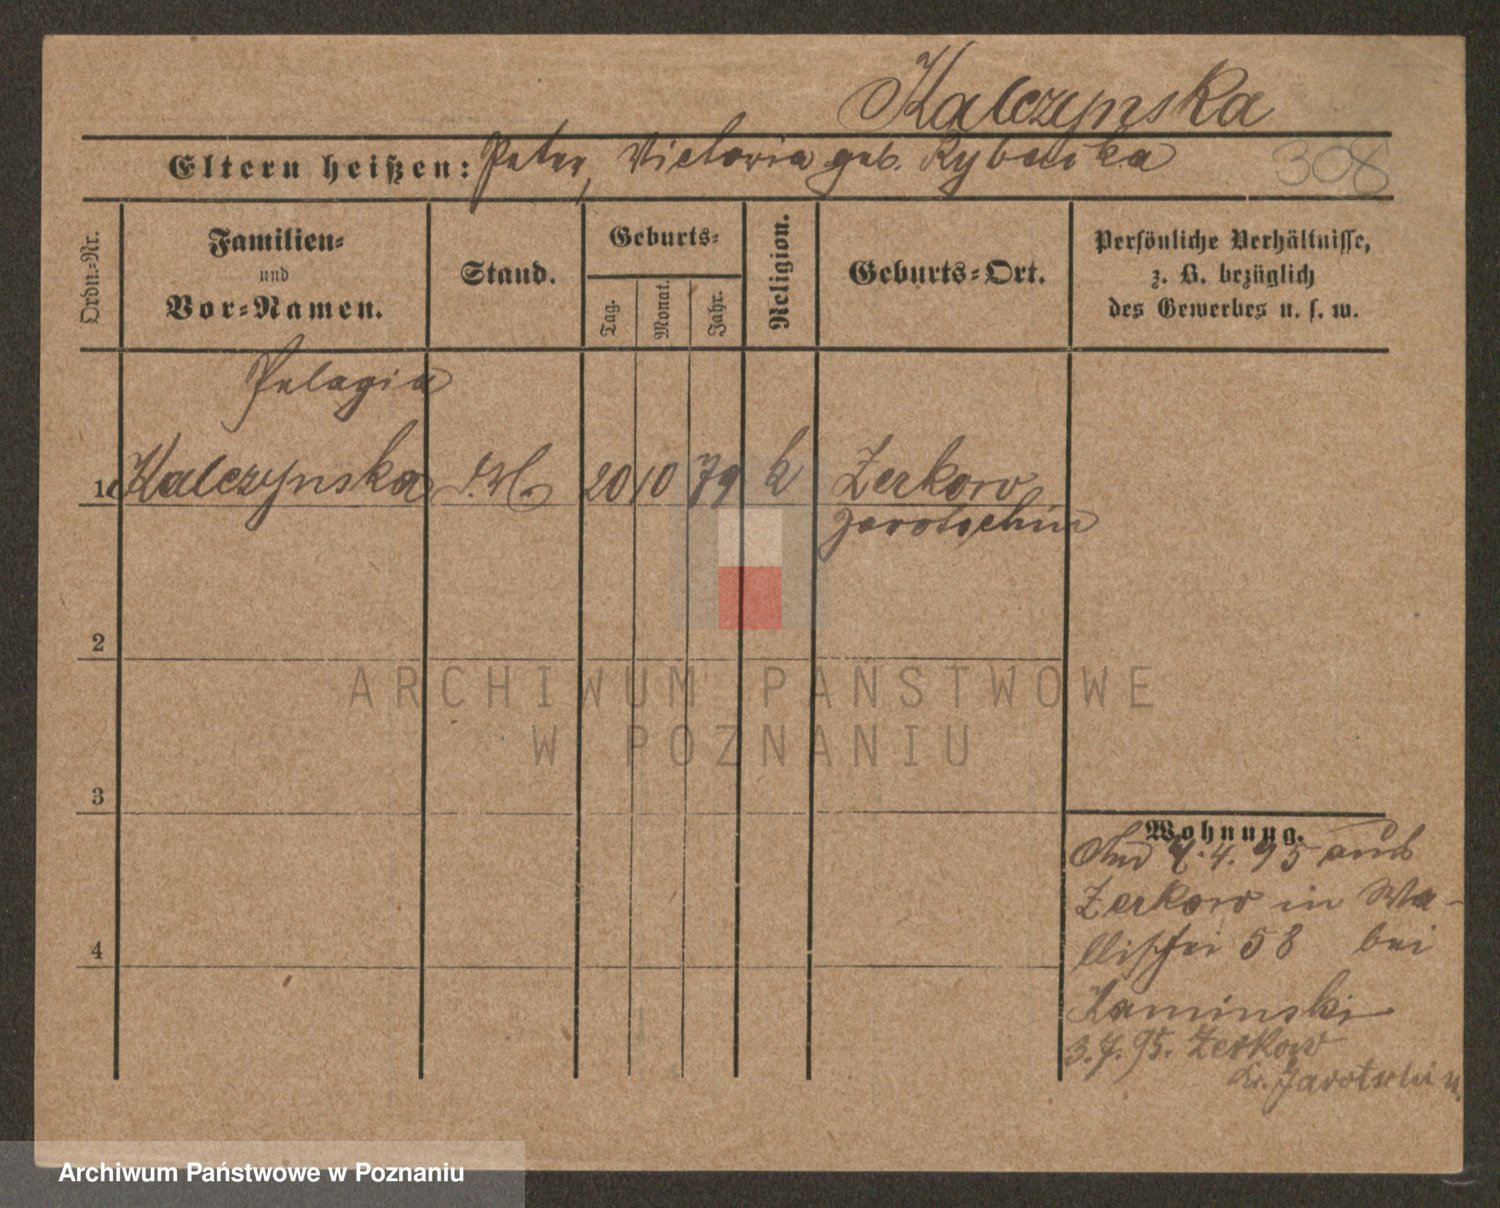 Kalczynska
Eltern heißen: Peter, Victoria geb. Rybacka 308
Ordn.-Nr.
Familien-
und
Vor-Namen.
Stand.
Geburts-
Tag.
Monat.
Jahr.
Religion.
Geburts-Ort.
Persönliche Verhältnisse,
z. B. bezüglich
des Gewerbes u. s. w.
Pelagia
1 Kalczynska 20 10 79 k Zerkow
Jarotschin
2
3
4
ARCHIWUM PAŃSTWOWE
W POZNANIU
Wohnung.
4. 95 aus
Zerkow in Wa-
llischei 58 bei
Kaminski
3.7.95. Zerkow
Kr. Jarotschin
Archiwum Państwowe w Poznaniu